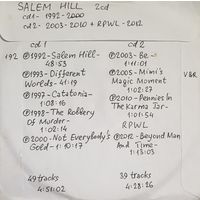 SALEM HILL 2cd
cd1- 1992-2000
cd2- 2003-2010 + RPWL-2012
cd1
192 ℗1992-Salem Hill-
48:53
℗1993-Different
Worlds-41:19
℗1997-Catatonia-
1:08:16
℗1998-The Robbery
Of Murder-
1:02:14
℗2000-Not Everybody's
Gold-1:10:17
49 tracks
4:51:02
cd2
℗2003-Be-
1:11:01
℗2005-Mimi's V.B.R
Magic Moment
1:02:27
℗2010-Pennies In
The Karma Jar-
1:01:54
RPWL
℗2012-Beyond Man
And Time-
1:13:03
39 tracks
4:28:26